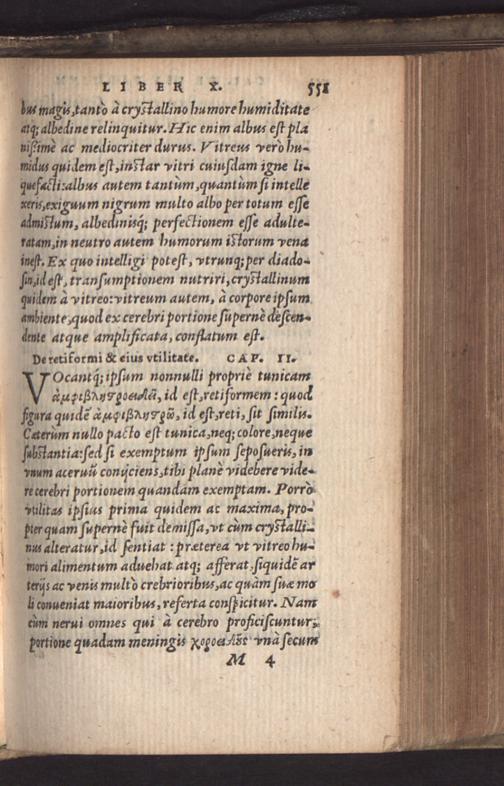 LIBER X. 551
bus magis, tantò à crystallino humore humiditate
atq; albedine relinquitur. Hic enim albus est pla
nißimè ac mediocriter durus. Vitreus verò hu-
midus quidem est, instar vitri cuiusdam igne li-
quefacti: albus autem tantùm, quantùm si intelle
xeris, exiguum nigrum multo albo per totum esse
admistum, albedinisq; perfectionem esse adulte-
ratam, in neutro autem humorum istorum vena
inest. Ex quo intelligi potest, vtrunq; per diado-
sin, id est, transumptionem nutriri, crystallinum
quidem à vitreo: vitreum autem, à corpore ipsum
ambiente, quod ex cerebri portione supernè descen-
dente atque amplificata, conflatum est.
De retiformi & eius vtilitate. CAP. II.
VOcantq́; ipsum nonnulli propriè tunicam
ἀμφιβληστροειδῆ, id est, retiformem: quod
figura quidẽ ἀμφιβλήστρῳ, id est, reti, sit similis.
Cæterùm nullo pacto est tunica, neq; colore, neque
substantia: sed si exemptum ipsum seposueris, in
vnum aceruũ conijciens, tibi planè videbere vide-
re cerebri portionem quandam exemptam. Porrò
vtilitas ipsius prima quidem ac maxima, pro-
pter quam supernè fuit demissa, vt cùm crystalli-
nus alteratur, id sentiat: præterea vt vitreo hu-
mori alimentum aduehat atq; afferat, siquidẽ ar
terijs ac venis multò crebrioribus, ac quàm suæ mo
li conueniat maioribus, referta conspicitur. Nam
cùm nerui omnes qui à cerebro proficiscuntur,
portione quadam meningis χοροειδοῦς vnà secum
M 4